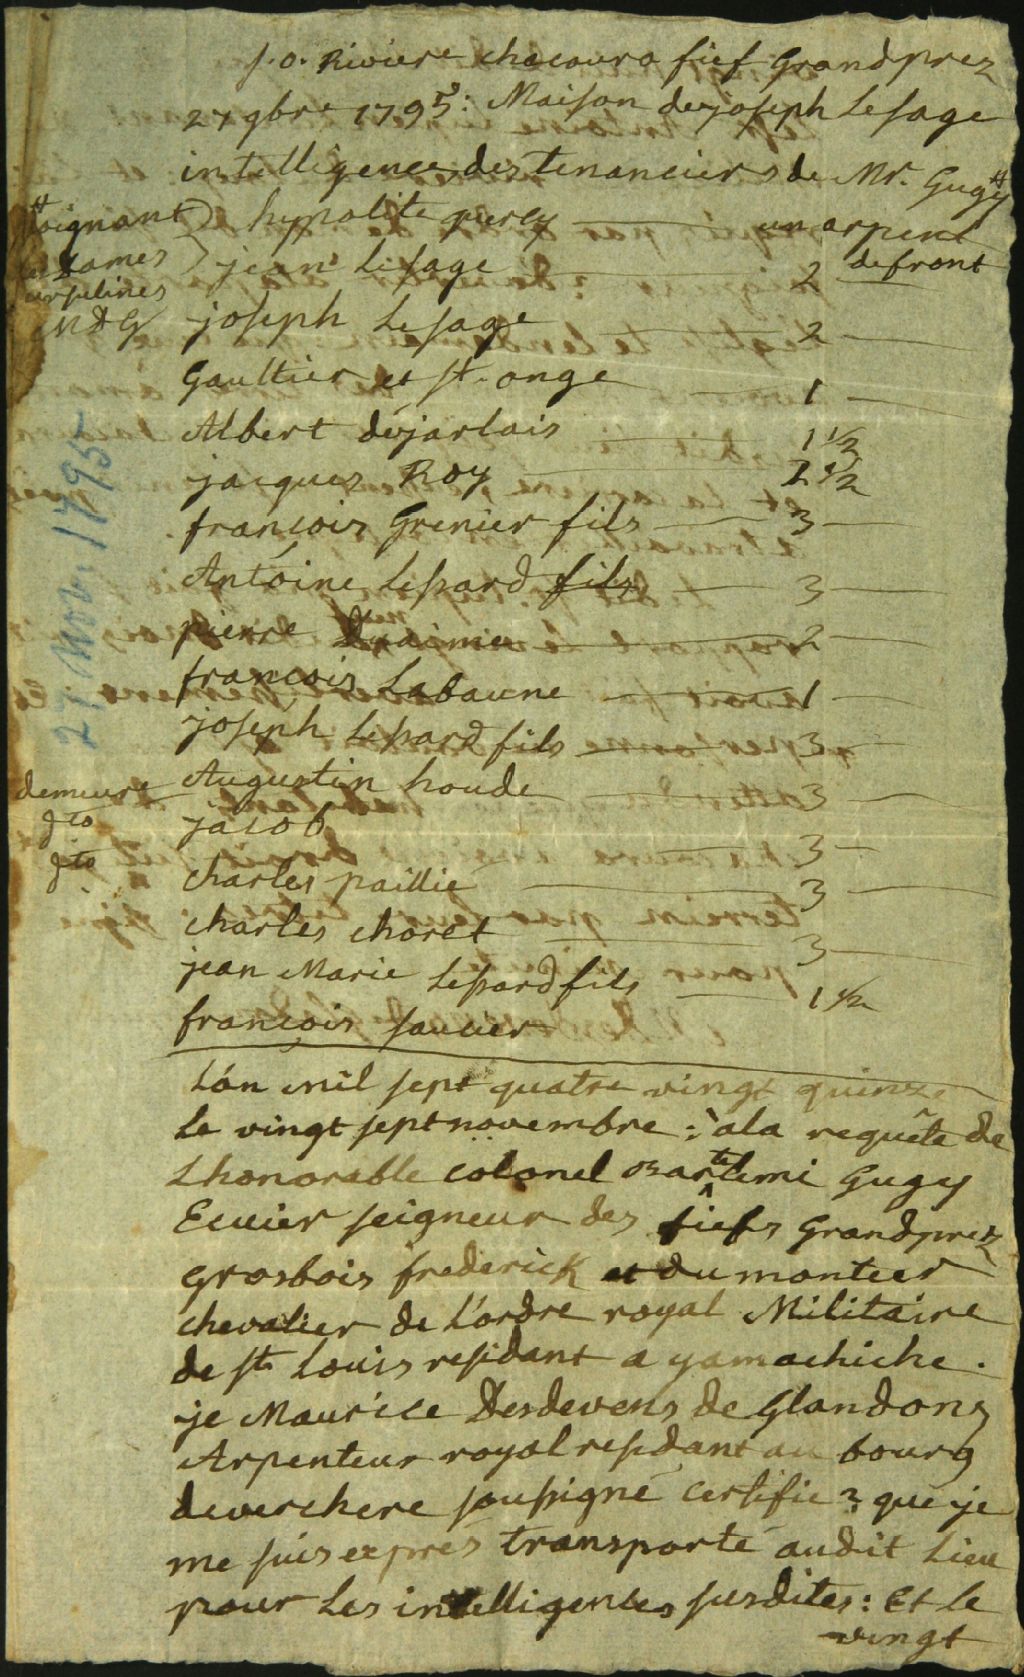 S.O. Riviere chacoura fief Grandprez
27 9bre 1795: Maison de joseph Lesage
intelligences des tenanciers de Mr. Gugy #
# joignant les Dames ursulines MDG
hypolite querey un arpent de front
jean Lesage 2
joseph Lesage 2
Gaultier et st. onge 1
Albert dejarlais 1 1/2
jacques Roy 1 1/2
françois Grenier fils 3
Antoine Lessard fils 3
pierre 2
françois Labaune 1
joseph Lessard fils 3
demeure Augustin houde 3
dto jacob 3
dto charles paillié 3
charles choret 3
jean Marie Lessard fils 1 1/2
françois saucier
27. Nov. 1795
L'ón mil sept quatre vingt quinze
le vingt sept novembre: à la requête de
Lhonorable colonel Bartelemi Gugy
Ecuier seigneur des fiefs Grandprez
Grosbois frederick et dumontier
chevalier de L'ordre royal Militaire
de st Louis residant a yamachiche.
je Maurice Desdevens de Glandons
Arpenteur royal residant au bourg
deverchere soussigné certifie: que je
me suis exprés transporté audit Lieu
pour Les intelligences susdites: Et le
vingt